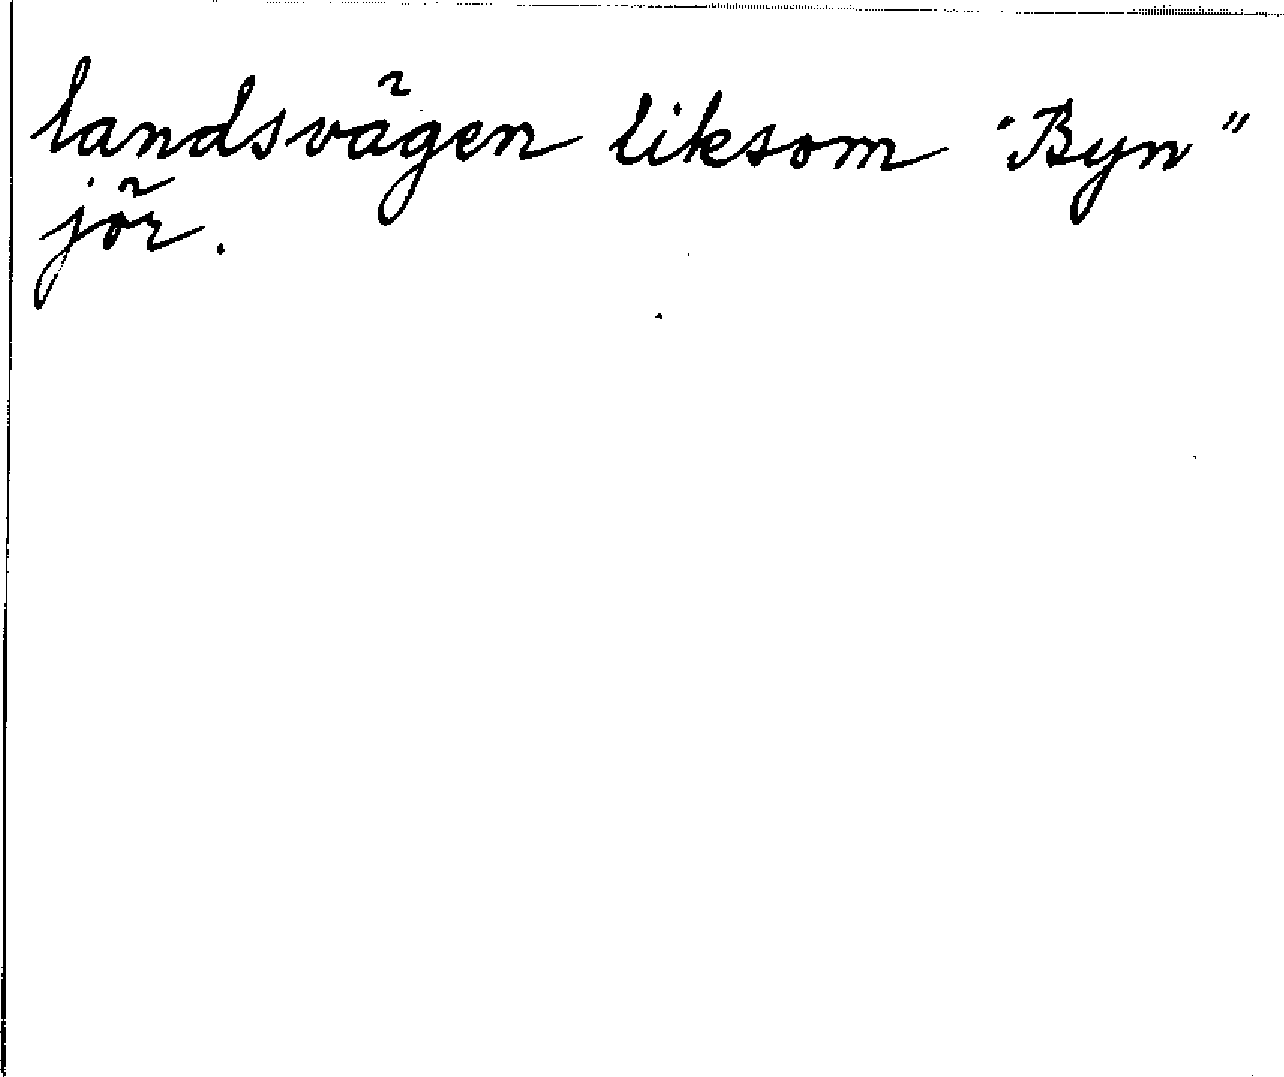 landsvägen liksom "Byn"
jör.